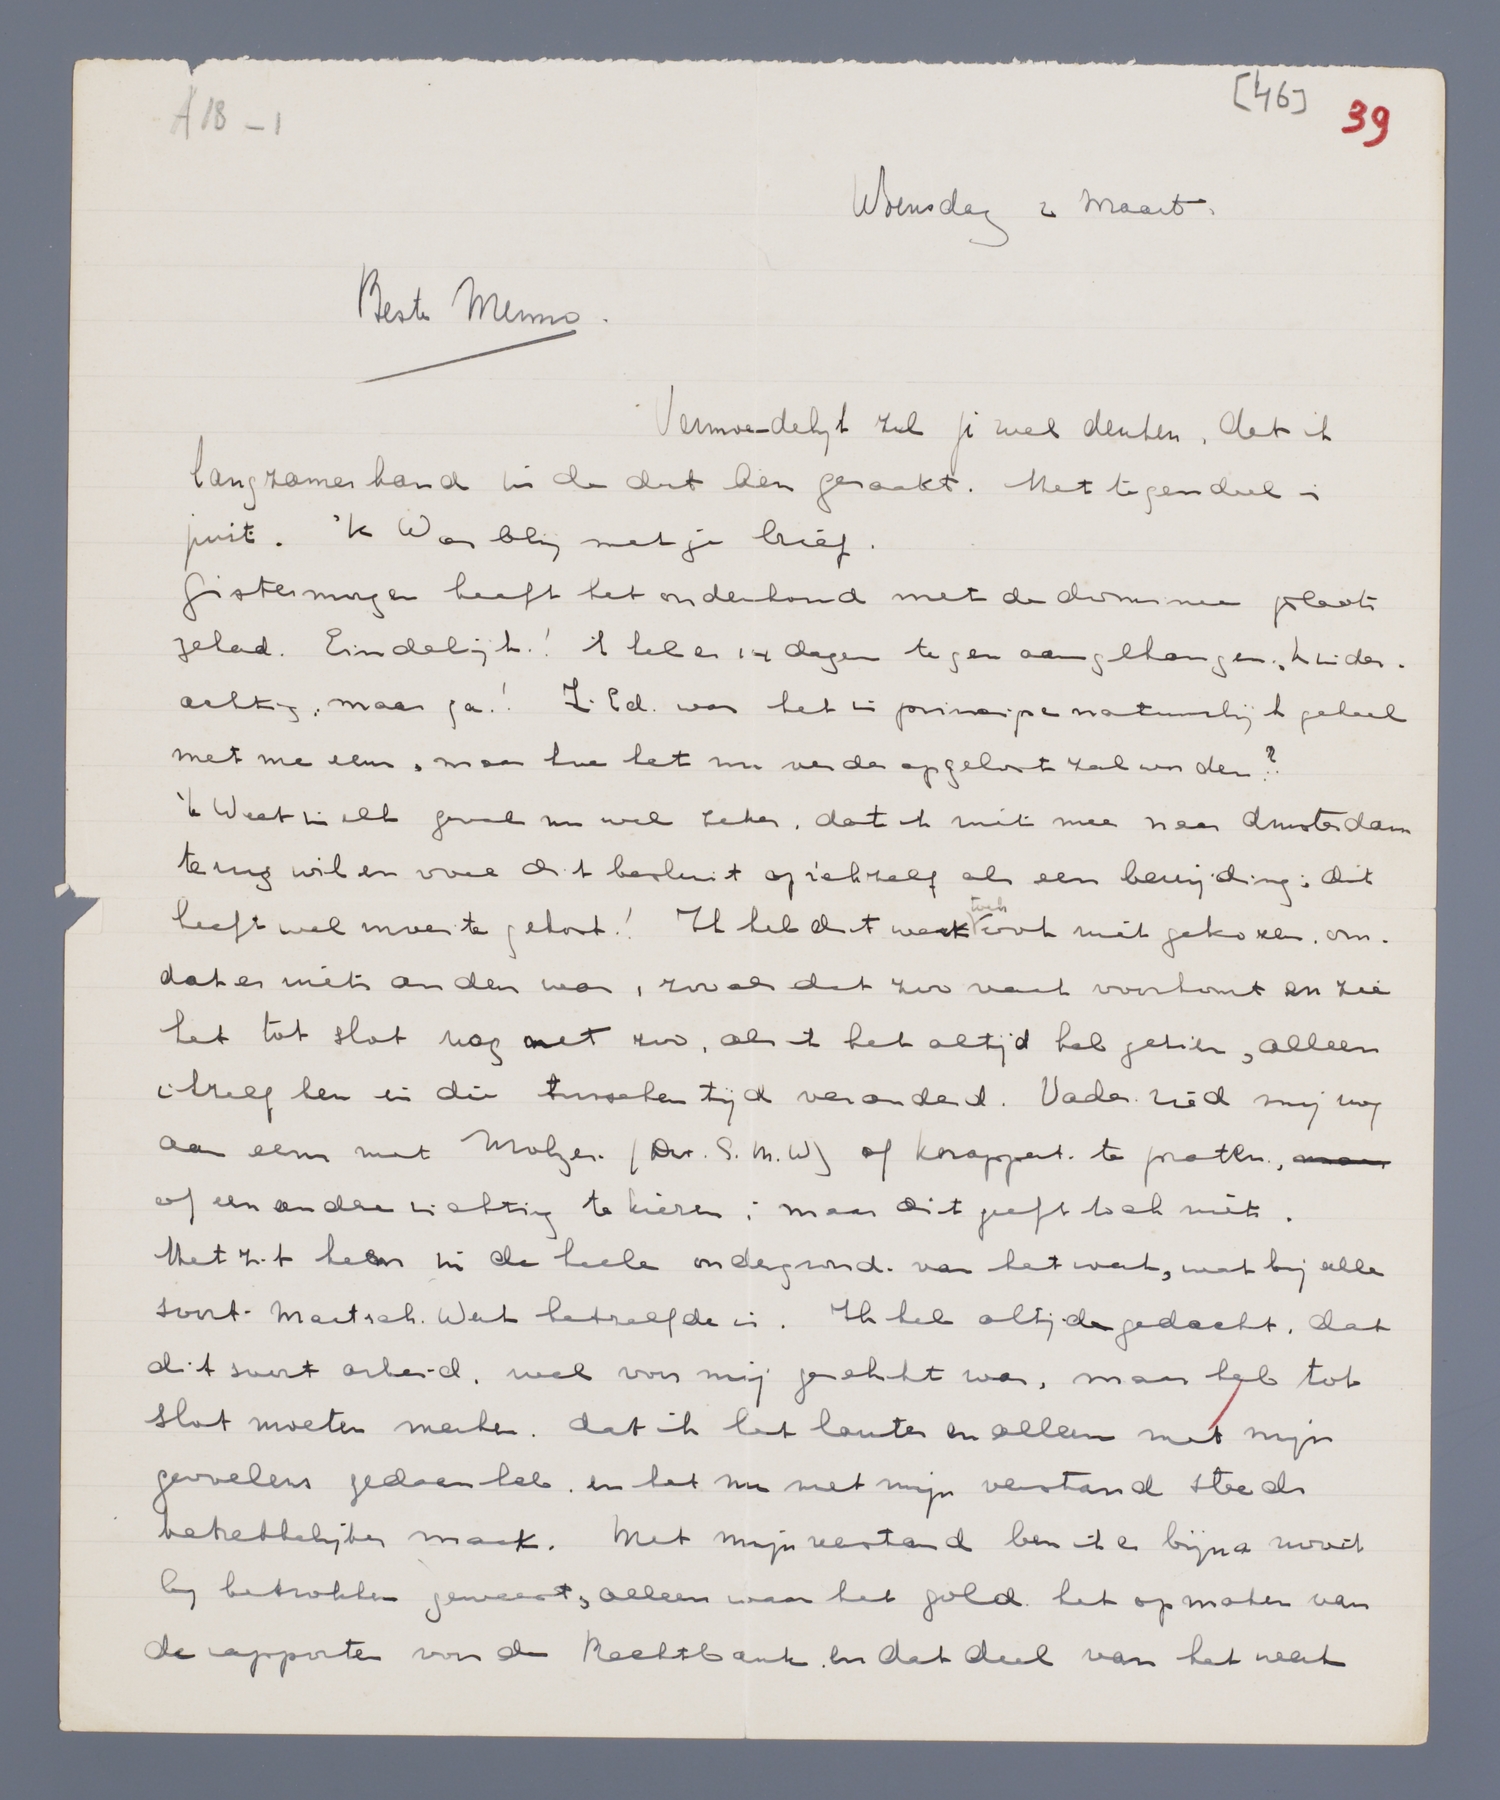 A 18 - 1
[46] 39
Woensdag 2 Maart.
Beste Menno.
Vermoedelijk zul je wel denken, dat ik
langzamerhand in de dut ben geraakt. Het tegendeel is
juist. 'k Was blij met je brief.
Gistermorgen heeft het onderhoud met de dominee plaats
gehad. Eindelijk! ik heb er 14 dagen tegen aangehangen, kinder-
achtig, maar ja! Z.Ed. was het in principe natuurlijk geheel
met me eens, maar hoe het nu verder opgelost zal worden?
'k Weet in elk geval nu wel zeker, dat ik niet mee naar Amsterdam
terug wil en voel dit besluit op zichzelf als een bevrijding; dit
heeft wel moeite gekost! Ik heb dit werk toch ook niet gekozen, om-
dat er niets anders was, zooals dat zoo vaak voorkomt en zie
het tot slot nog net zoo, als ik het altijd heb gezien, alleen
ikzelf ben in die tusschentijd veranderd. Vader ried mij nog
aan eens met Molzer (Dir. S.M.W) of Knappert te praten, maar
of een andere richting te kiezen; maar dit geeft toch niets.
Het zit hem in de heele ondergrond van het werk, wat bij alle
soort Maatsch. Werk hetzelfde is. Ik heb altijd gedacht, dat
dit soort arbeid, wel voor mij geschikt was, maar heb tot
slot moeten merken, dat ik het louter en alleen met mijn
gevoelens gedaan heb, en het nu met mijn verstand steeds
betrekkelijker maak. Met mijn verstand ben ik er bijna nooit
bij betrokken geweest, alleen waar het gold het opmaken van
de rapporten voor de Rechtbank en dat deel van het werk